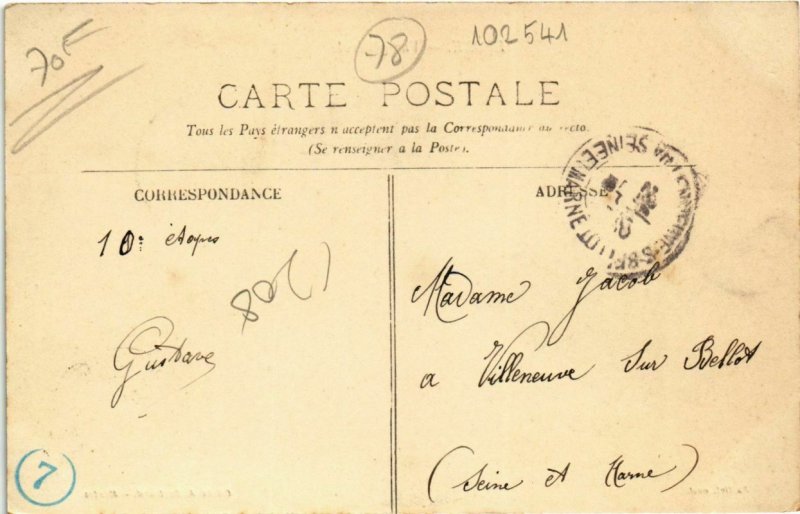 70F
78
102541
CARTE POSTALE
Tous les Pays étrangers n acceptent pas la Correspondance au recto.
(Se renseigner a la Poste).
CORRESPONDANCE
ADRESSE
SEINE ET MARNE
10e étapes
Gustave
Madame Jacob
a Villeneuve Sur Bellot
(Seine et Marne)
7